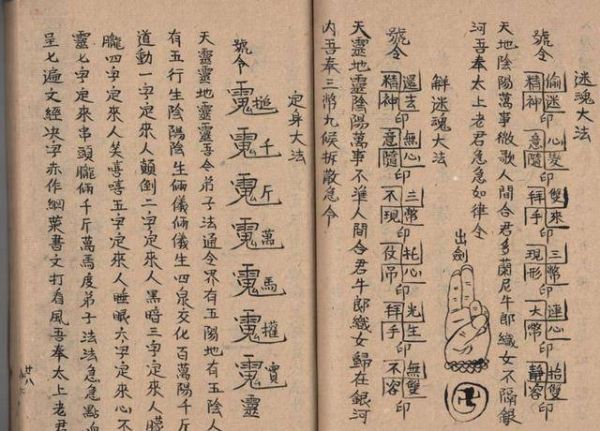 迷魂大法
號令
偷迷精神印
心变意隨印
雙來拜手印
三幣現形印
連心大幣印
抬雙靜容印
天地陰陽萬事微歌人間合君多蘭尼牛郎織女不隔銀
河吾奉太上老君急急如律令
出劍
解迷魂大法
號令
還玄精神印
無心意隨印
三幣不現印
托心仗吊印
光生拜手印
無雙不容印
天靈地靈陰陽萬事不淮人間合君牛郎織女歸在銀河
內吾奉三幣九候拆散急令
定身大法
號令
千斤萬馬
靈
天靈靈地靈靈吾令弟子法通令界有五陽地有五陰人
有五行生陰陽陰生倆儀倆儀生四泉交化百萬陽千斤
道動一字定來人顛倒二字定來人黑暗三字定來人朦
朧四字定來人笑嘻嘻五字定來人睡眠六字定來人心不
靈七字定來串頭朧倆千斤萬馬度弟子法法急急點血
呈七遍文經決字赤作網粟書文打看風吾奉太上老君
廿八